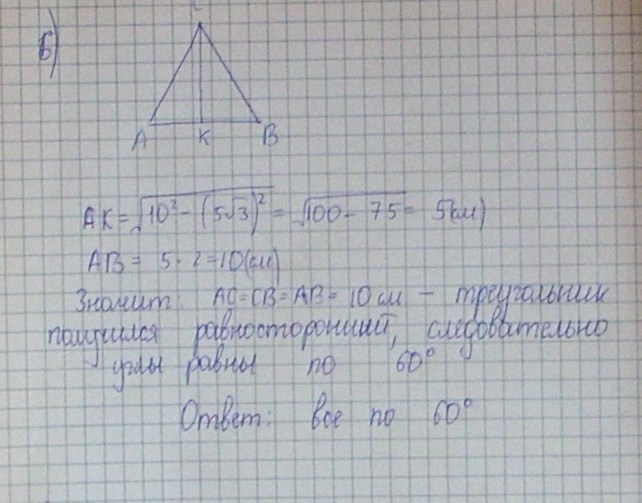 б)
C
A K B
AK = √10² - (5√3)² = √100 - 75 = 5(см)
AB = 5 · 2 = 10(см)
Значит: AC = CB = AB = 10 см - треугольник
получился равносторонний, следовательно
углы равны по 60°
Ответ: все по 60°